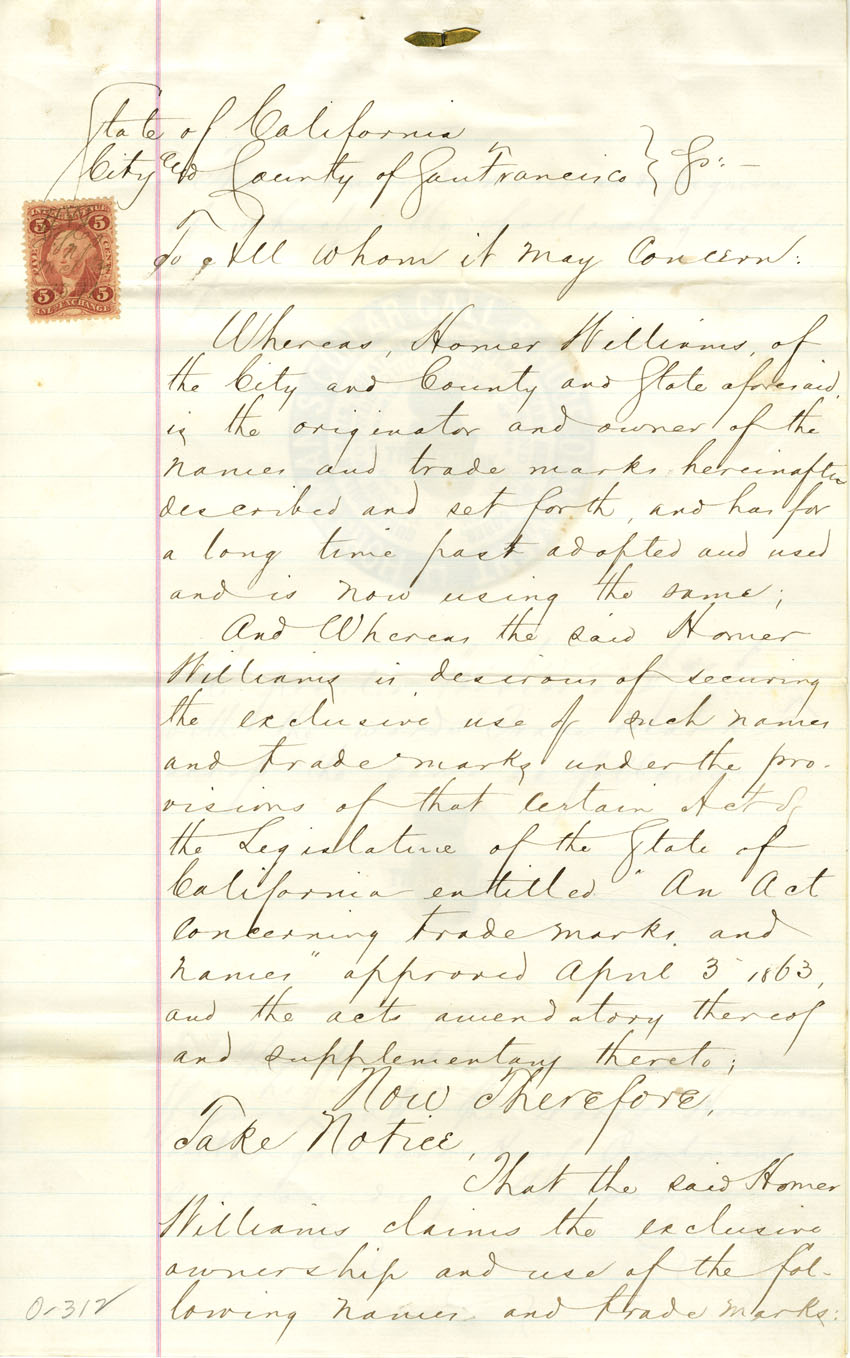 State of California
City and County of San Francisco } Ss:—
To All whom it may Concern:
5 5
5 5
INL. EXCHANGE
Whereas, Homer Williams, of
the City and County and State aforesaid,
is the originator and owner of the
names and trade marks hereinafter
described and set forth, and has for
a long time past adopted and used
and is now using the same;
And Whereas the said Homer
Williams is desirous of securing
the exclusive use of such names
and trade marks under the pro-
visions of that certain Act of
the Legislature of the State of
California entitled "An Act
concerning trade marks and
names" approved April 3 1863,
and the acts amendatory thereof
and supplementary thereto;
Now Therefore,
Take Notice,
That the said Homer
Williams claims the exclusive
ownership and use of the fol-
lowing names and trade marks:
0-312